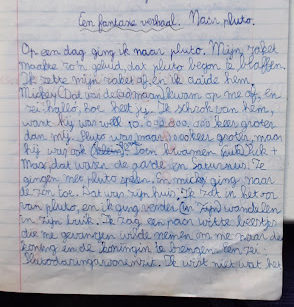 Een fantasie verhaal. Naar pluto.
Op een dag ging ik naar pluto. Mijn raket
maakte zo'n geluid, dat pluto begon te blaffen.
Ik zette mijn raket af, en ik aaide hem.
Mickey (Dat was de maan) kwam op me af, en
zei hallo, hoe heet jij. Ik schrok van hem,
want hij was wel keer groter
dan mij. Pluto was maar keer groter, maar
hij was ook Toen kwamen +
Max, dat waren de aarde en Saturnus. Ze
gingen met pluto spelen. En micky ging naar
de zon toe. Dat was zijn huis. Ik zat in het oor
van pluto, en ik ging verder (in zijn) wandelen
in zijn buik. Ik zag een paar witte beestjes
die me gevangen wilde nemen om me naar de
koning en de koningin te brengen. een zei
Ik wist niet wat het